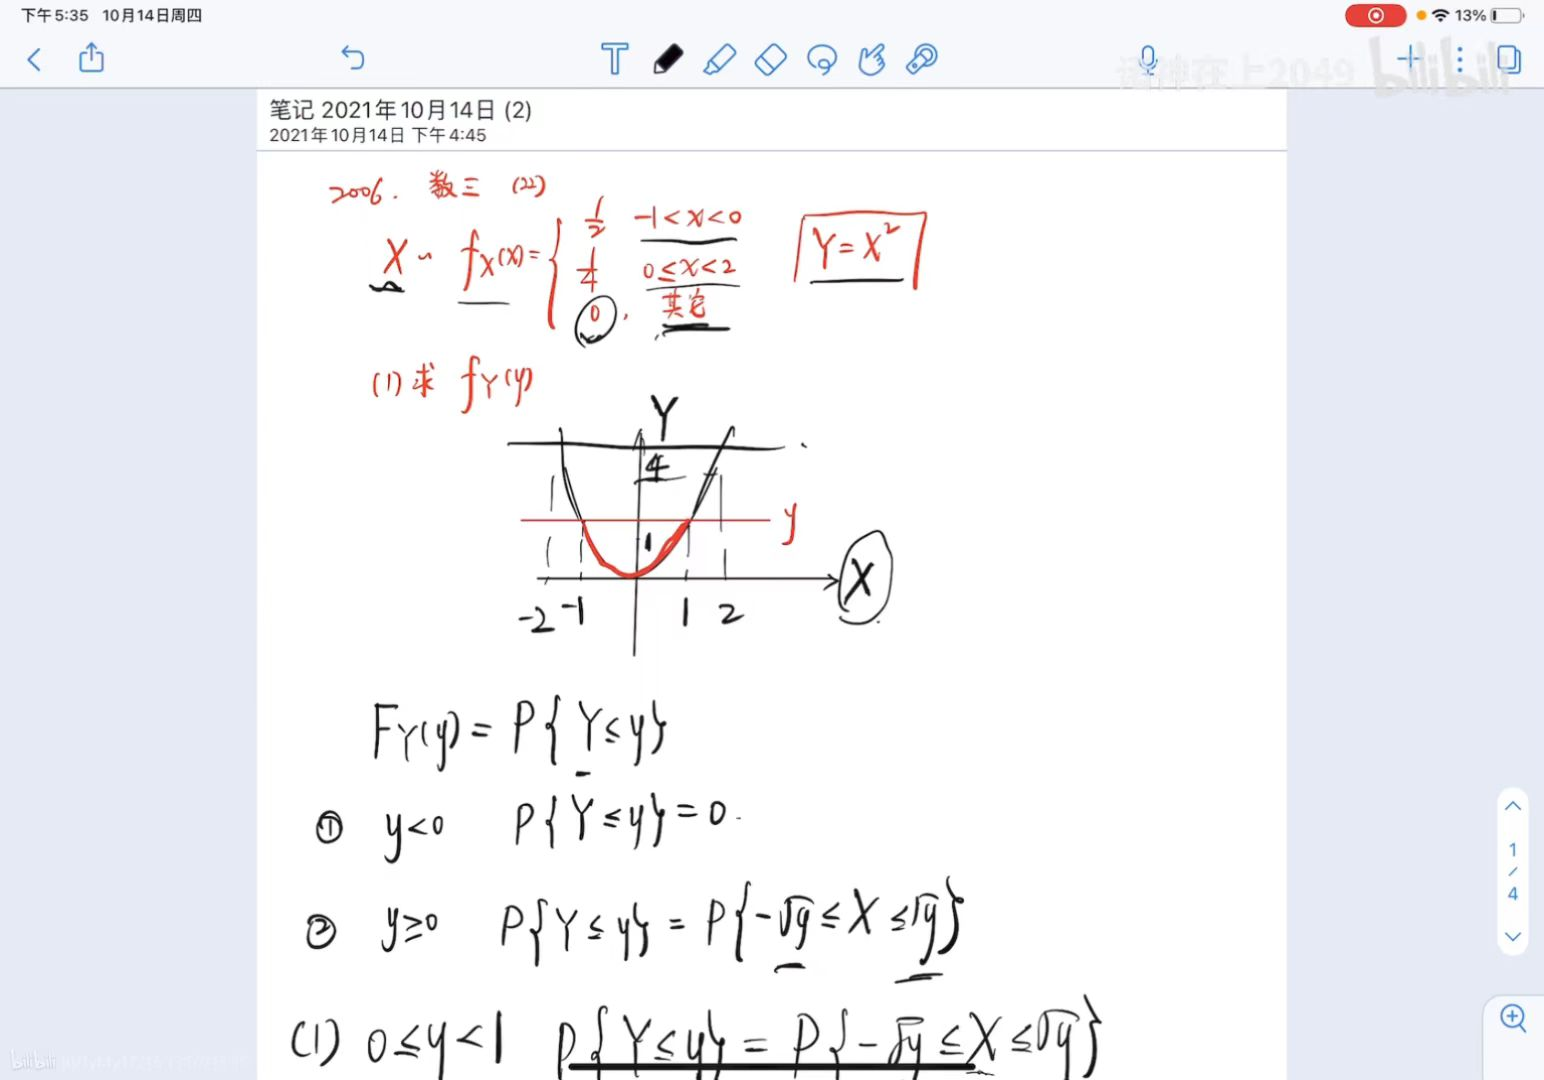 下午5:35 10月14日周四
13%
诸神在上2049 bilibili
笔记 2021年10月14日 (2)
2021年10月14日 下午4:45
2006. 数三 (22)
X ~ f_X(x) = { 1/2 -1<x<0
1/4 0≤x<2
0, 其它
Y=X²
(1) 求 f_Y(y)
Y
4
y
1
X
-2 -1 1 2
F_Y(y) = P{Y≤y}
① y<0 P{Y≤y}=0.
② y≥0 P{Y≤y} = P{-√y≤X≤√y}
(1) 0≤y<1 P{Y≤y} = P{-√y≤X≤√y}
1
/
4
bilibili